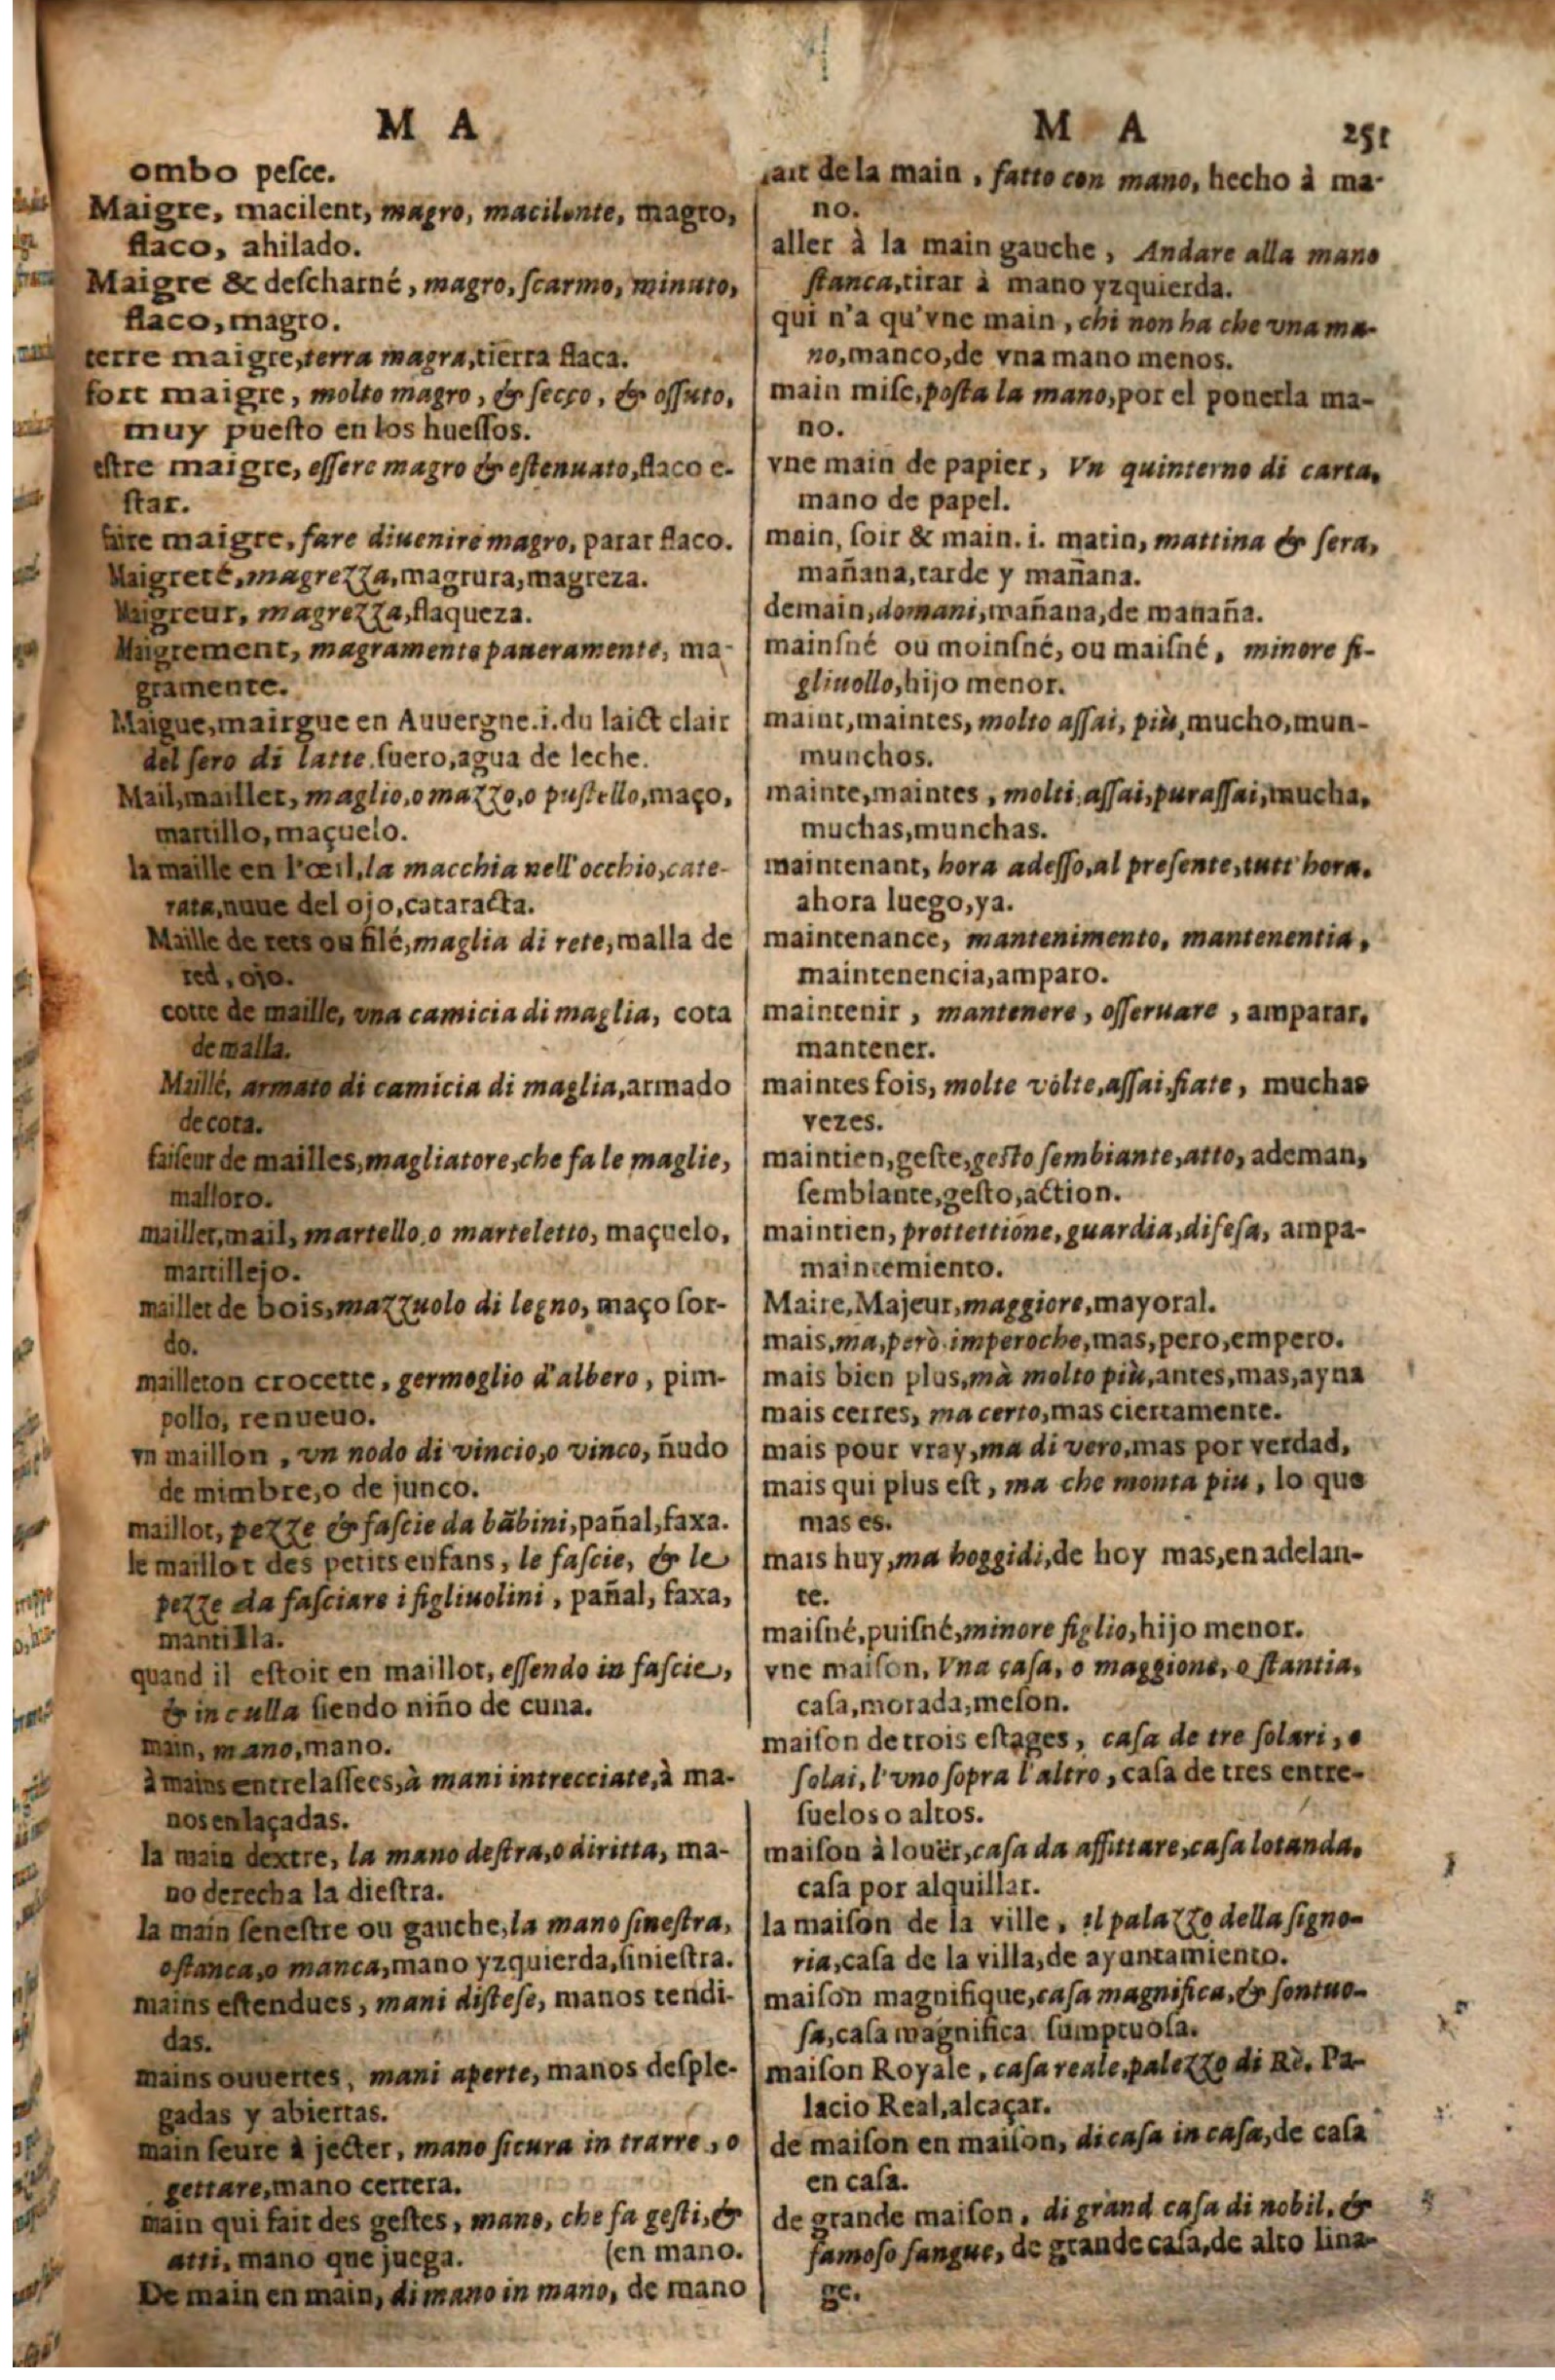 M A
ombo peſce.
Maigre, macilent, magro, macilente, magro,
flaco, ahilado.
Maigre & deſcharné, magro, ſcarmo, minuto,
flaco, magro.
terre maigre, terra magra, tierra flaca.
fort maigre, molto magro, & ſecco, & oſſuto,
muy pueſto en los hueſſos.
eſtre maigre, eſſere magro & eſtenuato, flaco e-
ſtar.
faire maigre, fare diuenire magro, parar flaco.
Maigreté, magrezza, magrura, magreza.
Maigreur, magrezza, flaqueza.
Maigrement, magramente paueramente, ma-
gramente.
Maigue, mairgue en Auuergne. i. du laict clair
del ſero di latte. ſuero, agua de leche.
Mail, maillet, maglio, o mazzo, o puſtello, maço,
martillo, maçuelo.
la maille en l'œil, la macchia nell'occhio, cate-
rata, nuue del ojo, cataracta.
Maille de rets ou filé, maglia di rete, malla de
red, ojo.
cotte de maille, vna camicia di maglia, cota
de malla.
Maillé, armato di camicia di maglia, armado
de cota.
faiſeur de mailles, magliatore, che fa le maglie,
malloro.
maillet, mail, martello, o marteletto, maçuelo,
martillejo.
maillet de bois, mazzuolo di legno, maço ſor-
do.
mailleton crocette, germoglio d'albero, pim-
pollo, renueuo.
vn maillon, vn nodo di vincio, o vinco, ñudo
de mimbre, o de junco.
maillot, pezze & faſcie da bãbini, pañal, faxa.
le maillot des petits enfans, le faſcie, & le
pezze da faſciare i figliuolini, pañal, faxa,
mantilla.
quand il eſtoit en maillot, eſſendo in faſcie,
& in culla ſiendo niño de cuna.
main, mano, mano.
à mains entrelaſſees, à mani intrecciate, à ma-
nos enlaçadas.
la main dextre, la mano deſtra, o diritta, ma-
no derecha la dieſtra.
la main ſeneſtre ou gauche, la mano ſineſtra,
o ſtanca, o manca, mano yzquierda, ſinieſtra.
mains eſtendues, mani diſteſe, manos tendi-
das.
mains ouuertes, mani aperte, manos deſple-
gadas y abiertas.
main ſeure à jecter, mano ſicura in trarre, o
gettare, mano certera.
main qui fait des geſtes, mano, che fa geſti, &
atti, mano que juega. (en mano.
De main en main, di mano in mano, de mano
M A 251
fait de la main, fatto con mano, hecho à ma-
no.
aller à la main gauche, Andare alla mano
ſtanca, tirar à mano yzquierda.
qui n'a qu'vne main, chi non ha che vna ma-
no, manco, de vna mano menos.
main miſe, poſta la mano, por el ponerla ma-
no.
vne main de papier, Vn quinterno di carta,
mano de papel.
main, ſoir & main. i. matin, mattina & ſera,
mañana, tarde y mañana.
demain, domani, mañana, de manaña.
mainſné ou moinſné, ou maiſné, minore fi-
gliuollo, hijo menor.
maint, maintes, molto aſſai, più, mucho, mun-
munchos.
mainte, maintes, molti, aſſai, puraſſai, mucha,
muchas, munchas.
maintenant, hora adeſſo, al preſente, tutt'hora.
ahora luego, ya.
maintenance, mantenimento, mantenentia,
maintenencia, amparo.
maintenir, mantenere, oſſeruare, amparar,
mantener.
maintes fois, molte volte, aſſai, fiate, muchas
vezes.
maintien, geſte, geſto ſembiante, atto, ademan,
ſemblante, geſto, action.
maintien, prottettione, guardia, difeſa, ampa-
maintemiento.
Maire, Majeur, maggiore, mayoral.
mais, ma, però, imperoche, mas, pero, empero.
mais bien plus, mà molto più, antes, mas, ayna
mais certes, ma certo, mas ciertamente.
mais pour vray, ma di vero, mas por verdad,
mais qui plus eſt, ma che monta piu, lo que
mas es.
mais huy, ma hoggidi, de hoy mas, en adelan-
te.
maiſné, puiſné, minore figlio, hijo menor.
vne maiſon, Vna caſa, o maggione, o ſtantia,
caſa, morada, meſon.
maiſon de trois eſtages, caſa de tre ſolari, o
ſolai, l'vno ſopra l'altro, caſa de tres entre-
ſuelos o altos.
maiſon à louër, caſa da affittare, caſa lotanda,
caſa por alquillar.
la maiſon de la ville, il palazzo della ſigno-
ria, caſa de la villa, de ayuntamiento.
maiſon magnifique, caſa magnifica, & ſontuo-
ſa, caſa magnifica ſumptuoſa.
maiſon Royale, caſa reale, palezzo di Rè. Pa-
lacio Real, alcaçar.
de maiſon en maiſon, di caſa in caſa, de caſa
en caſa.
de grande maiſon, di grand caſa di nobil, &
famoſo ſangue, de grande caſa, de alto lina-
ge.